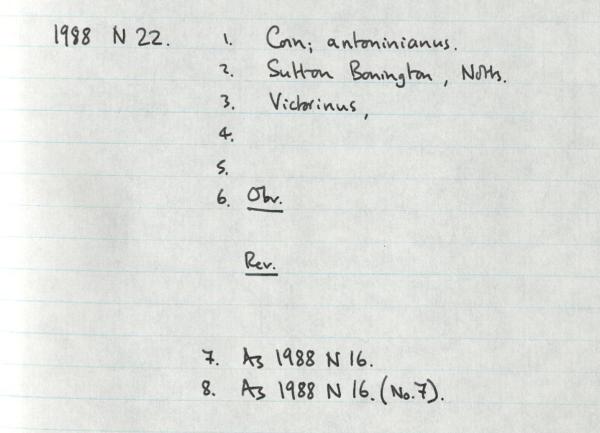 1988 N 22. 1. Coin; antoninianus.
2. Sutton Bonington, Notts.
3. Victorinus,
4.
5.
6. Obv.
Rev.
7. As 1988 N 16.
8. As 1988 N 16. (No. 7).